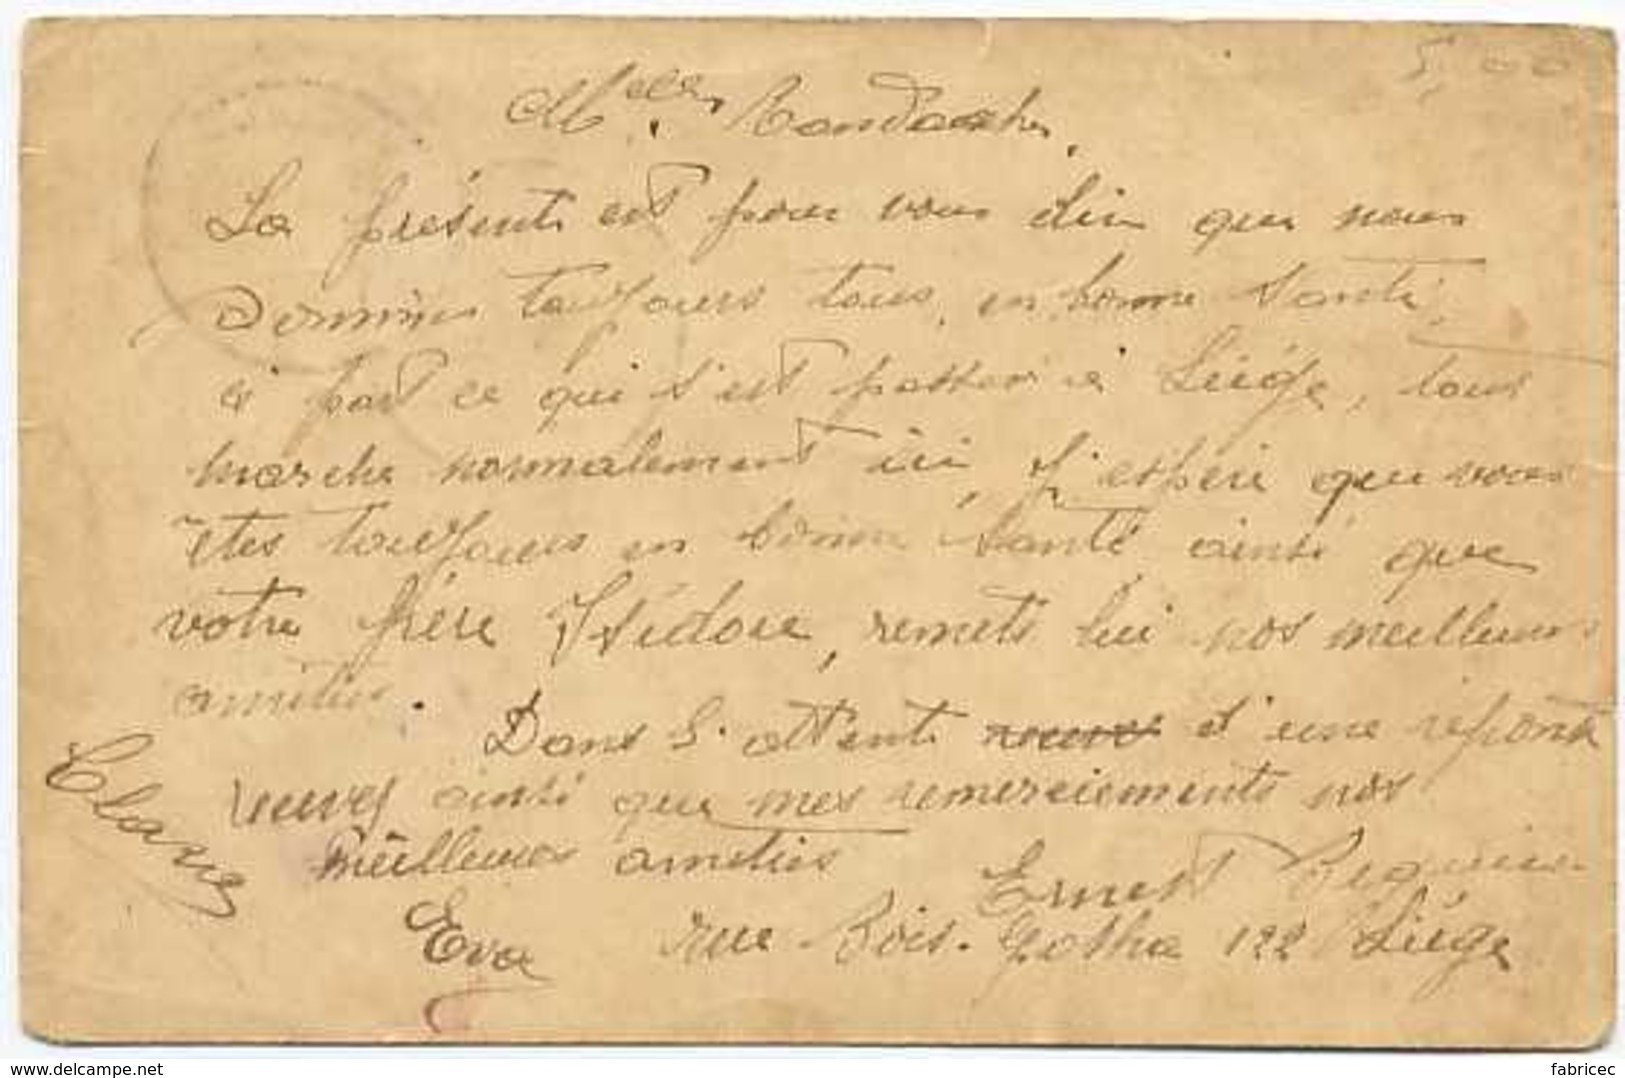 5,00
Melles
La présente est pour vous dire que nous
sommes toujours tous, en bonne santé,
à part ce qui s'est passer à Liége, tous
marche normalement ici, J'espère que vous
êtes toujours en bonne santé ainsi que
votre frère Isidore, remets lui nos meilleures
amitiés.
Dans l'attente d'une réponse
recevez ainsi que mes remerciements nos
meilleures amitiés
Clara
Ernest
Eva rue Bois-Gotha 122 Liége
delcampe.net
fabricec